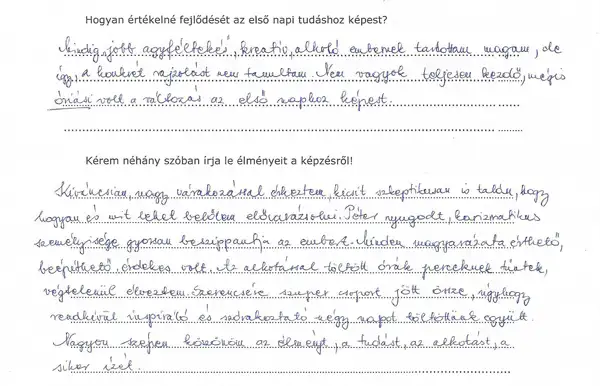 Hogyan értékelné fejlődését az első napi tudáshoz képest?
Mindig "jobb agyféltekés", kreatív, alkotó embernek tartottam magam, de
így, a konkrét rajzolást nem tanultam. Nem vagyok teljesen kezdő, mégis
óriási volt a változás az első naphoz képest.
Kérem néhány szóban írja le élményeit a képzésről!
Kíváncsian, nagy várakozással érkeztem, kicsit szkeptikusan is talán, hogy
hogyan és mit lehet belőlem elővarázsolni. Péter nyugodt, karizmatikus
személyisége gyorsan beszippantja az embert. Minden magyarázata érthető,
beépíthető, érdekes volt. Az alkotással töltött órák perceknek tűntek,
végtelenül élveztem. Szerencsére szuper csoport jött össze, úgyhogy
rendkívül inspiráló és szórakoztató négy napot töltöttünk együtt.
Nagyon szépen köszönöm az élményt, a tudást, az alkotást, a
siker ízét.